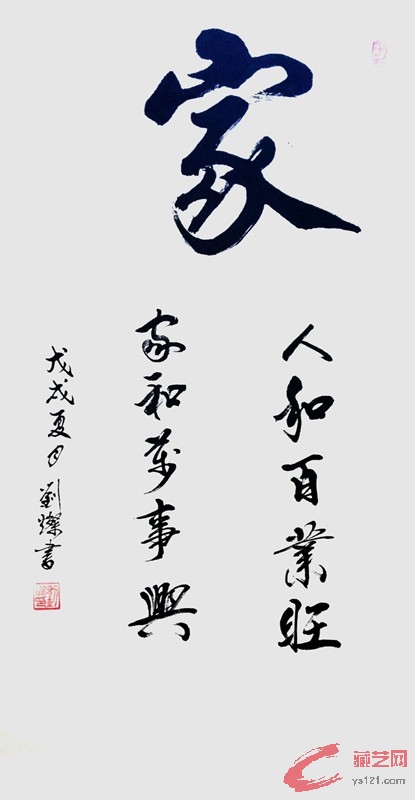 家
人和百業旺
家和萬事興
戊戌夏月 劉燦書
藏艺网
ys121.com